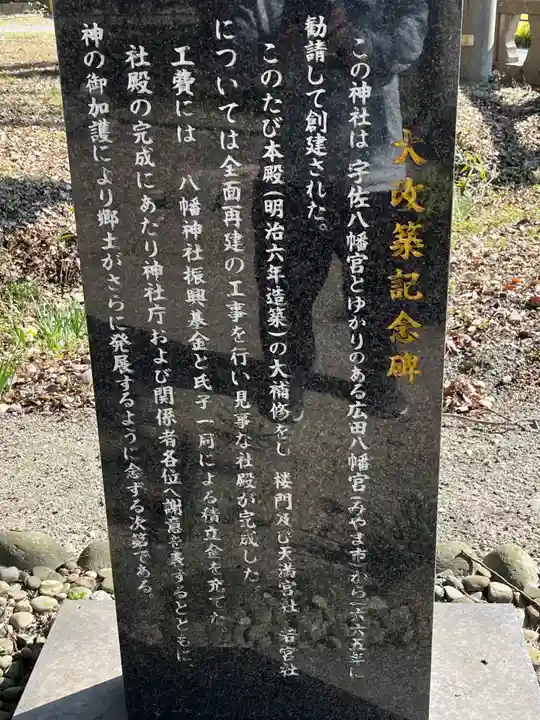 大改築記念碑
この神社は 宇佐八幡宮とゆかりのある広田八幡宮(みやま市)から一六六五年に
勧請して創建された。
このたび本殿(明治六年造築)の大補修をし 楼門及び天満宮社 若宮社
については全面再建の工事を行い見事な社殿が完成した。
工費には 八幡神社振興基金と氏子一同による積立金を充てた。
社殿の完成にあたり神社庁および関係者各位へ謝意を表するとともに
神の御加護により郷土がさらに発展するように念ずる次第である。